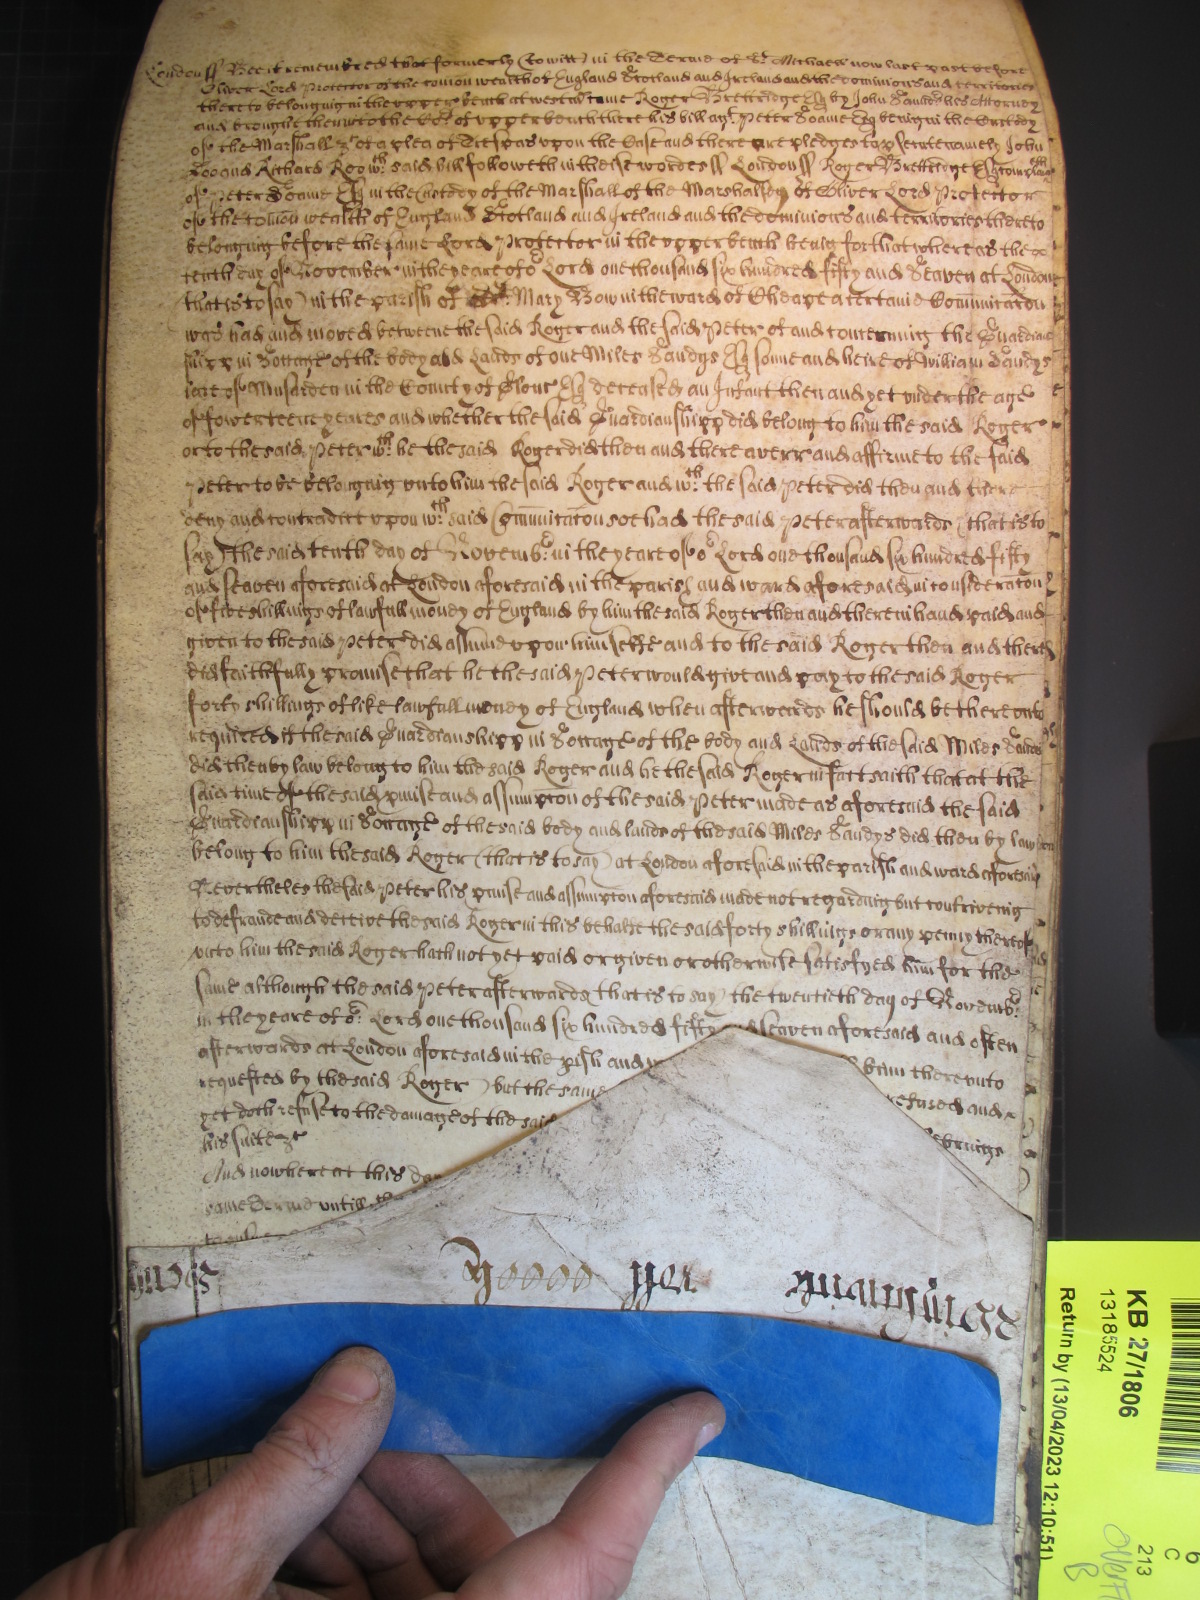 London ss Bee it remembred that formerly (to witt) in the Terme of St Michaell now last past before
Oliver Lord Protector of the comon wealth of England Scotland and Ireland and the dominions and territories
there to belonging in the upper bench at westm came Roger Brettridge Esq by John Sands his Attorney
and brought then unto the Co:rt of upper bench there his bill ag:t Peter Soame Esq being in the Custody
of the Marshall &c of a plea of Trespas upon the Case and there are pledges to prosecute namely John
Doo and Richard Roo w:ch said bill followeth in these wordes ss London ss Roger Brettridge Esq complaineth
of Peter Soame Esq in the Custody of the Marshall of the Marshallsey of Oliver Lord Protector
of the comon wealth of England Scotland and Ireland and the dominions and territories thereto
belonging before the same Lord Protector in the upper bench being for that whereas the
tenth day of November in the yeare of o:r Lord one thousand six hundred fifty and Seaven at London
that is to say) in the parish of St: Mary Bow in the ward of Cheape a certaine Communicaton
was had and moved betweene the said Roger and the said Peter of and concerning the Guardian
shipp in Soccage of the body and Lands of one Miles Sandys Esq sonne and heire of William Sandys
late of Misarden in the County of Glouc Esq deceased an Infant then and yet under the age
of fowerteene yeares and whether the said Guardianshipp did belong to him the said Roger
or to the said Peter w:ch he the said Roger did then and there averr and affirme to the said
Peter to be belonging unto him the said Roger and w:ch the said Peter did then and there
deny and contradict upon w:ch said Communicaton soe had the said Peter afterwards (that is to
say) the said tenth day of Novemb:r in the yeare of o:r Lord one thousand six hundred fifty
and seaven aforesaid at London aforesaid in the parish and ward aforesaid in consideraton
of five shillings of lawfull money of England by him the said Roger then and there in hand paid and
given to the said Peter did assume upon himselfe and to the said Roger then and there
did faithfully promise that he the said Peter would give and pay to the said Roger
forty shillings of like lawfull money of England when afterwards he should be thereunto
required if the said Guardianshipp in Soccage of the body and Lands of the said Miles Sands
did then by law belong to him the said Roger and he the said Roger in fact saith that at the
said time of the said pmise and assumpton of the said Peter made as aforesaid the said
Guardianshipp in Soccage of the said body and lands of the said Miles Sandys did then by law
belong to him the said Roger (that is to say) at London aforesaid in the parish and ward aforesaid
Neverthelas the said Peter his pmise and assumpton aforesaid made not regarding but contriveing
to defraude and deceive the said Roger in this behalfe the said forty shillings or any penny thereof
unto him the said Roger hath not yet paid or given or otherwise satisfyed him for the
same although the said Peter afterwards that is to say) the twentieth day of Novemb:r
in the yeare of o:r Lord one thousand six hundred fifty seaven aforesaid and often
afterwards at London aforesaid in the pish and him thereunto
requested by the said Roger ) but the same refused and
yet doth refuse to the damage of the said
his suite &c
And now here at this day
same day and untill
KB 27/1806
13185524
Return by (13/04/2023 12:10:51)
213
C
6